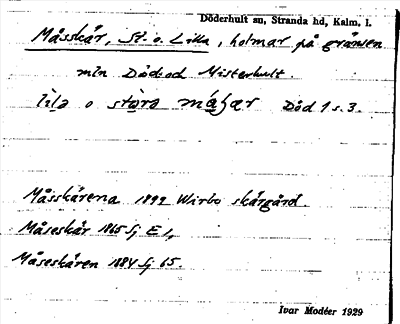 Döderhult sn, Stranda hd, Kalm. l.
Måsskär, St. o. Lilla, holmar på gränsen
mln Död. och Misterhult.
lila o stora måsǝr Död 1 s. 3.
Måsskärena 1892 Wirbo skärgård.
Måseskär 1865 Sj E 1,
Måseskären 1884 Sj 65.
Ivar Modéer 1929